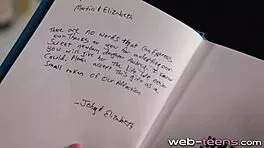 Martin & Elizabeth
There are no words that can Express
our Thanks to you for adopting our
Sweet newborn daughter
you will give her The Life
Could. Please accept this gift as a
Small token of our Admiration
- John & Elizabeth
web-teens.com